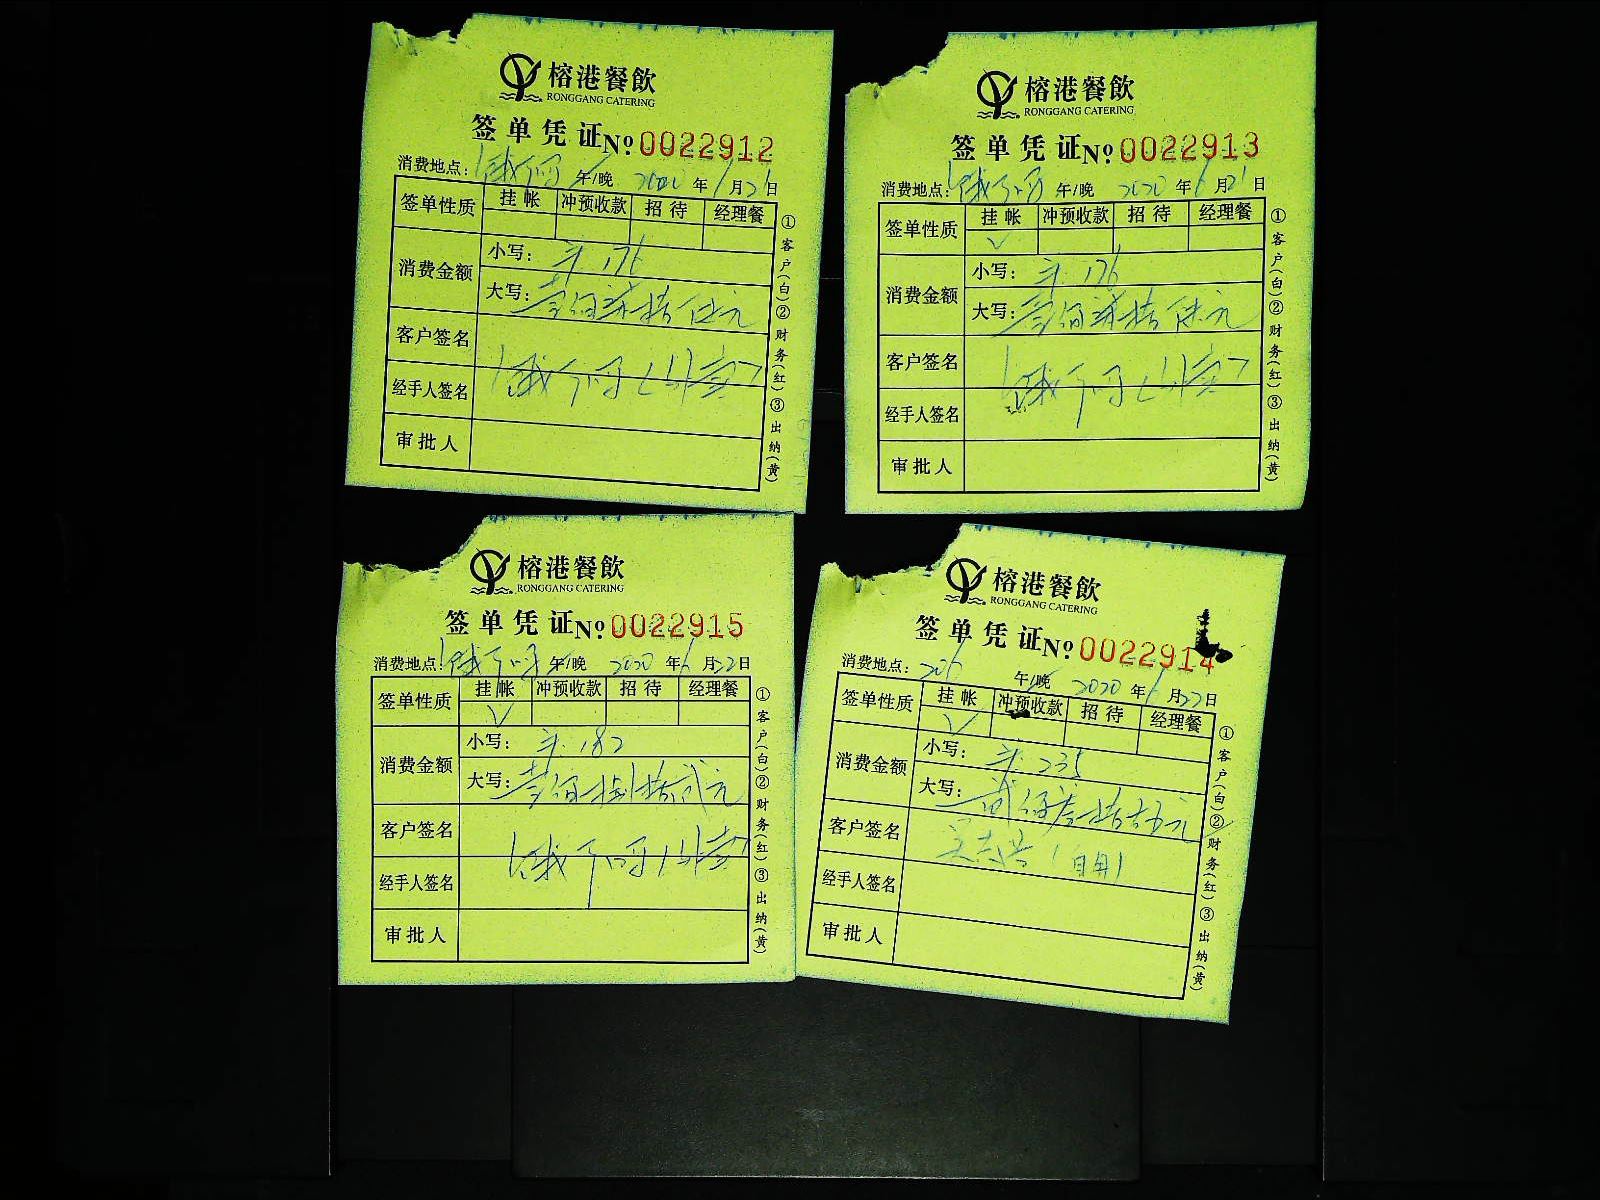 榕港餐飲
RONGGANG CATERING
签单凭证 No 0022912
消费地点：饿了吗 午/晚 2020年6月21日
签单性质 挂帐 冲预收款 招待 经理餐
消费金额 小写：176
大写：壹佰柒拾陆元
客户签名 饿了吗（外卖）
经手人签名
审批人
①客户(白)②财务(红)③出纳(黄)
榕港餐飲
RONGGANG CATERING
签单凭证 No 0022913
消费地点：饿了吗 午/晚 2020年6月21日
签单性质 挂帐 冲预收款 招待 经理餐
✓
消费金额 小写：176
大写：壹佰柒拾陆元
客户签名 饿了吗（外卖）
经手人签名
审批人
①客户(白)②财务(红)③出纳(黄)
榕港餐飲
RONGGANG CATERING
签单凭证 No 0022915
消费地点：饿了吗 午/晚 2020年6月22日
签单性质 挂帐 冲预收款 招待 经理餐
✓
消费金额 小写：182
大写：壹佰捌拾贰元
客户签名 饿了吗（外卖）
经手人签名
审批人
①客户(白)②财务(红)③出纳(黄)
榕港餐飲
RONGGANG CATERING
签单凭证 No 0022914
消费地点：206 午/晚 2020年6月22日
签单性质 挂帐 冲预收款 招待 经理餐
✓
消费金额 小写：235
大写：贰佰叁拾伍元
客户签名（自用）
经手人签名
审批人
①客户(白)②财务(红)③出纳(黄)